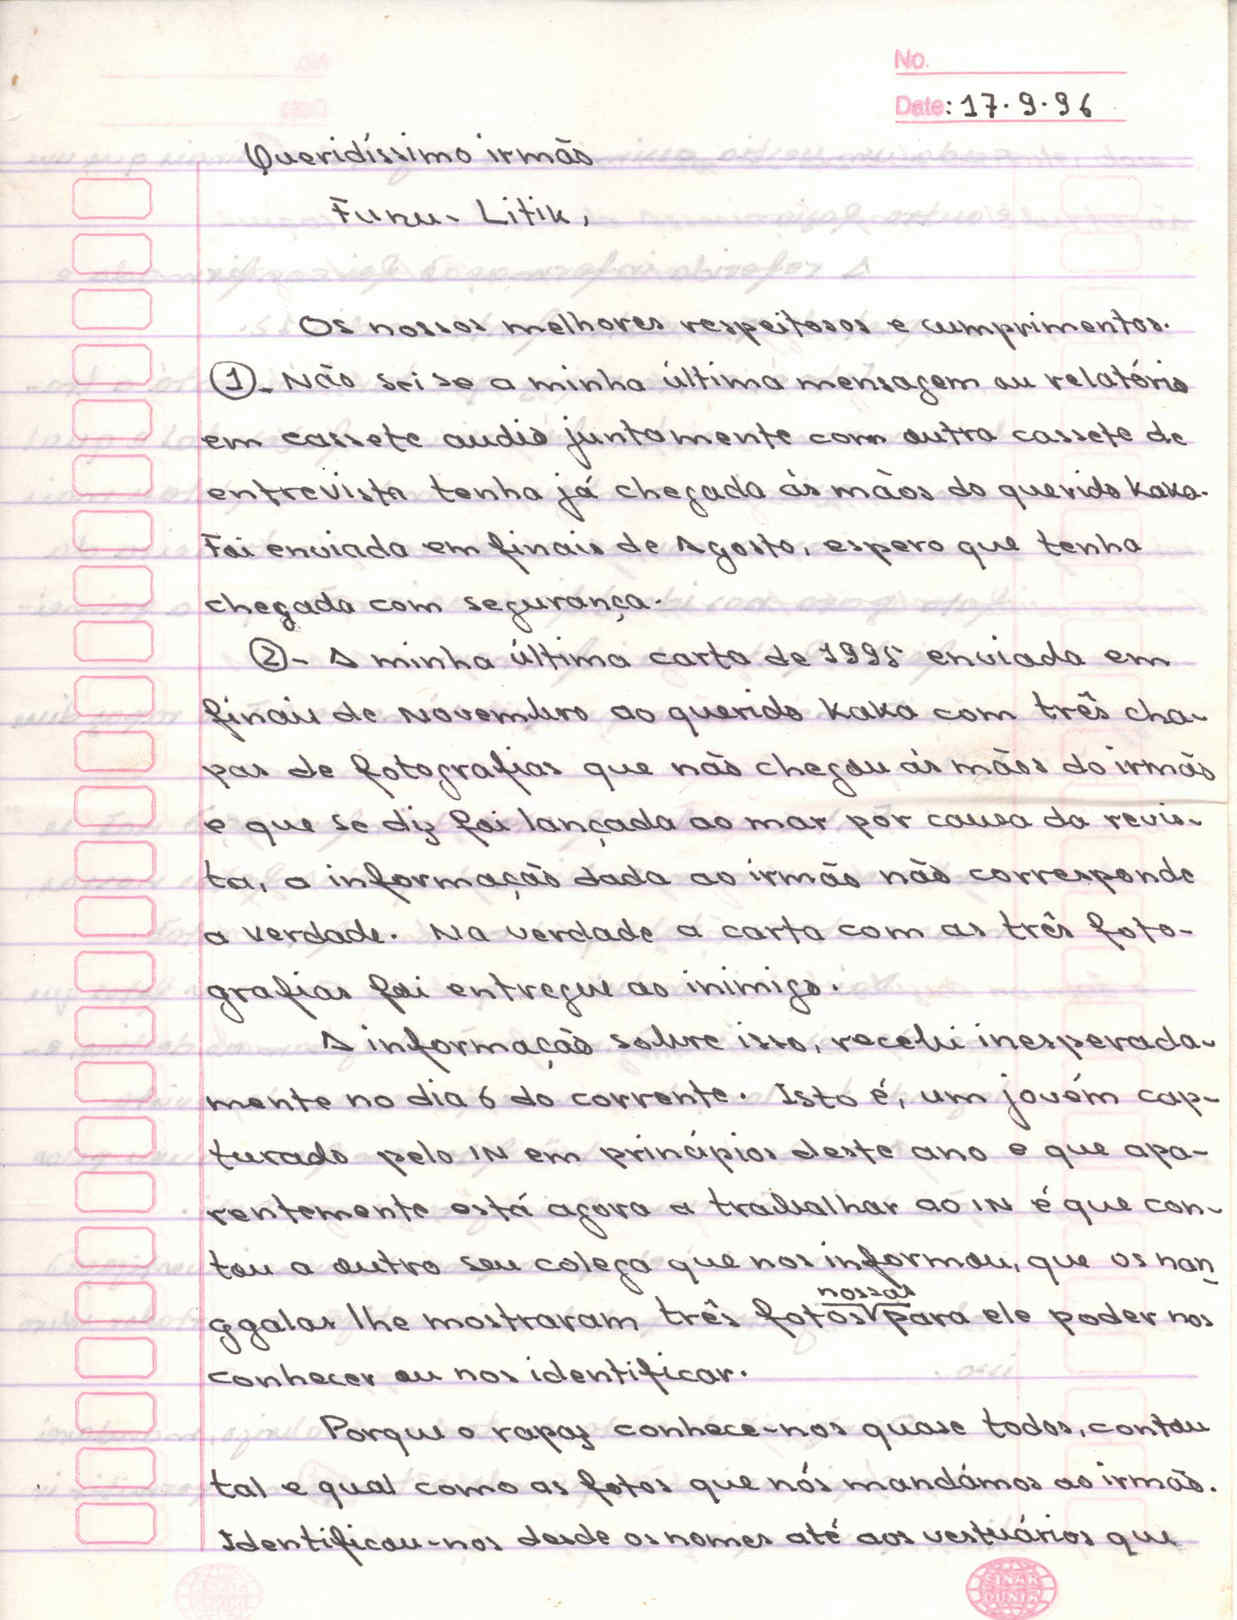 No.
Date: 17.9.96
Queridíssimo irmão
Funu-Litik,
Os nossos melhores respeitosos e cumprimentos.
1- Não sei se a minha última mensagem ou relatório
em cassete audio juntamente com outra cassete de
entrevista tenha já chegada às mãos do querido Kaka.
Foi enviada em finais de Agosto, espero que tenha
chegada com segurança.
2- A minha última carta de 1995 enviada em
finais de Novembro ao querido Kaka com três cha-
pas de fotografias que não chegou às mãos do irmão
e que se diz foi lançada ao mar por causa da revis-
ta, a informação dada ao irmão não corresponde
a verdade. Na verdade a carta com as três foto-
grafias foi entregue ao inimigo.
A informação sobre isso, recebi inesperada-
mente no dia 6 do corrente. Isto é, um jovém cap-
turado pelo IN em princípios deste ano e que apa-
rentemente está agora a trabalhar ao IN é que con-
tou a outro seu colega que nos informou, que os nan
ggalas lhe mostraram três fotos nossas para ele poder nos
conhecer ou nos identificar.
Porque o rapaz conhece-nos quase todos, contou
tal e qual como as fotos que nós mandámos ao irmão.
Identificou-nos desde os nomes até aos vestuários que
SINAR DUNIA